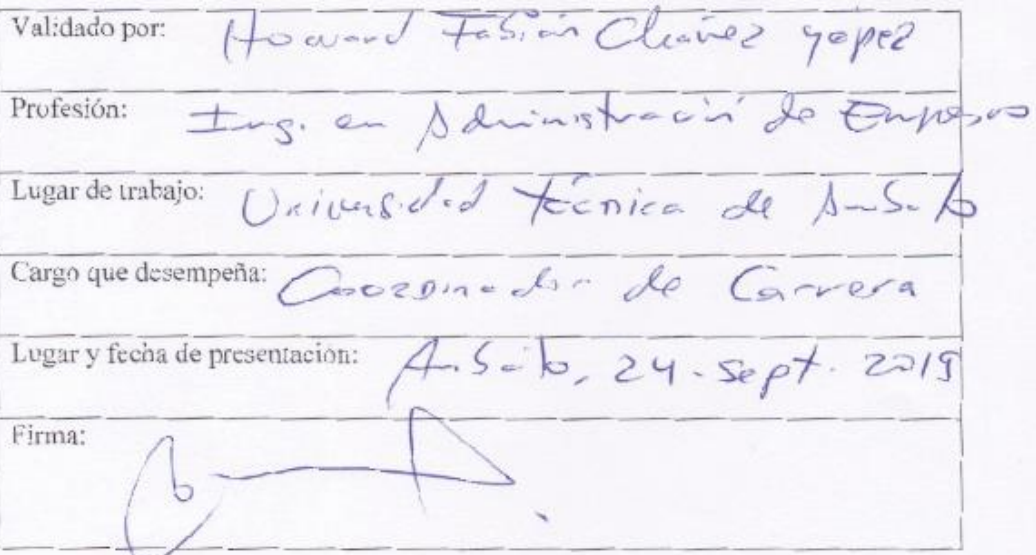 Validado por: Howard Fabián Chávez Yépez
Profesión: Ing. en Administración de Empresas
Lugar de trabajo: Universidad Técnica de Ambato
Cargo que desempeña: Coordinador de Carrera
Lugar y fecha de presentación: Ambato, 24-Sept. 2019
Firma: